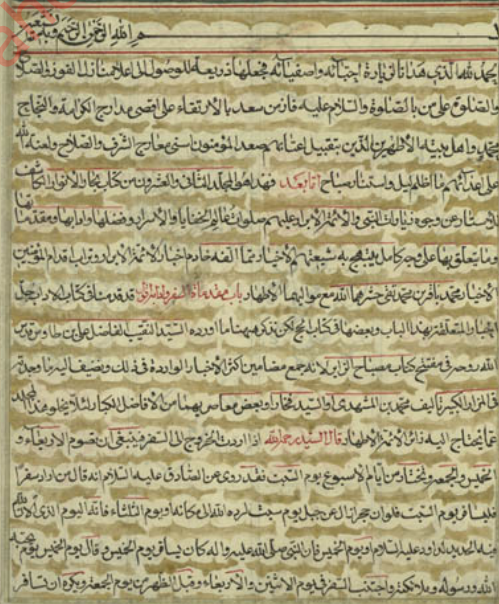 بسم الله الرحمن الرحيم وبه نستعين
الحمد لله الذي هدانا لزيارة احبائه واصفيائه فجعلها ذريعة للوصول الى اعلا منازل الفوز والصلاح
والصلوة على من بالصلوة والسلام عليه فاز من سعد بالارتقاء على اقصى مدارج الكرامة والنجاح
محمد واهل بيته الاطهرين الذين بتقبيل اعتابهم صعد المؤمنون اسنى معارج الشرف والفلاح ولعنة الله
على اعدائهم ما اظلم ليل واستنار صباح اما بعد فهذا هو المجلد الثاني والعشرون من كتاب بحار الانوار الكاشف
الاستار عن وجوه زيارات النبي والائمة الابرار عليهم صلوات الله الخفايا والاسرار وفضلها وادابها ومقدماتها
وما يتعلق بها على وجه كامل يبتهج به شيعتهم الاخيار مما الفه خادم اخبار الائمة الابرار وتراب اقدام المؤمنين
الاخيار محمد باقر بن محمد تقي حشرهما الله مع مواليهما الاطهار باب مقدمات السفر وادابه قد قدمنا في كتاب الاداب جل
الاخبار المتعلقة بهذا الباب وبعضها في كتاب الحج لكن نذكر ههنا ما اورده السيد النقيب الفاضل علي بن طاوس قدس
الله روحه في مفتتح كتاب مصباح الزائر لانه جمع مضامين اكثر الاخبار الواردة في ذلك ونضيف اليه ما وجدته
في المزار الكبير تاليف محمد بن المشهدي او السيد فخار او بعض معاصريهما من الافاضل الكبار لئلا يخلو هذا المجلد
عما يحتاج اليه زائر الائمة الاطهار قال السيد رحمه الله اذا اردت الخروج الى السفر فينبغي ان تصوم الاربعاء و
الخميس والجمعة وتختار من ايام الاسبوع يوم السبت فقد روى عن الصادق عليه السلام انه قال من اراد سفرا
فليسافر يوم السبت فلو ان حجرا زال عن جبل يوم سبت لرده الله الى مكانه او يوم الثلثاء فانه اليوم الذي الان الله
فيه الحديد لداود عليه السلام او يوم الخميس فان النبي صلى الله عليه واله كان يسافر يوم الخميس وقال يوم الخميس يوم يحبه
الله ورسوله وملائكته واجتنب السفر في يوم الاثنين والاربعاء وقبل الظهر من يوم الجمعة ويكره ان تسافر